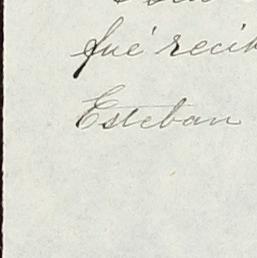 fué recib
Esteban